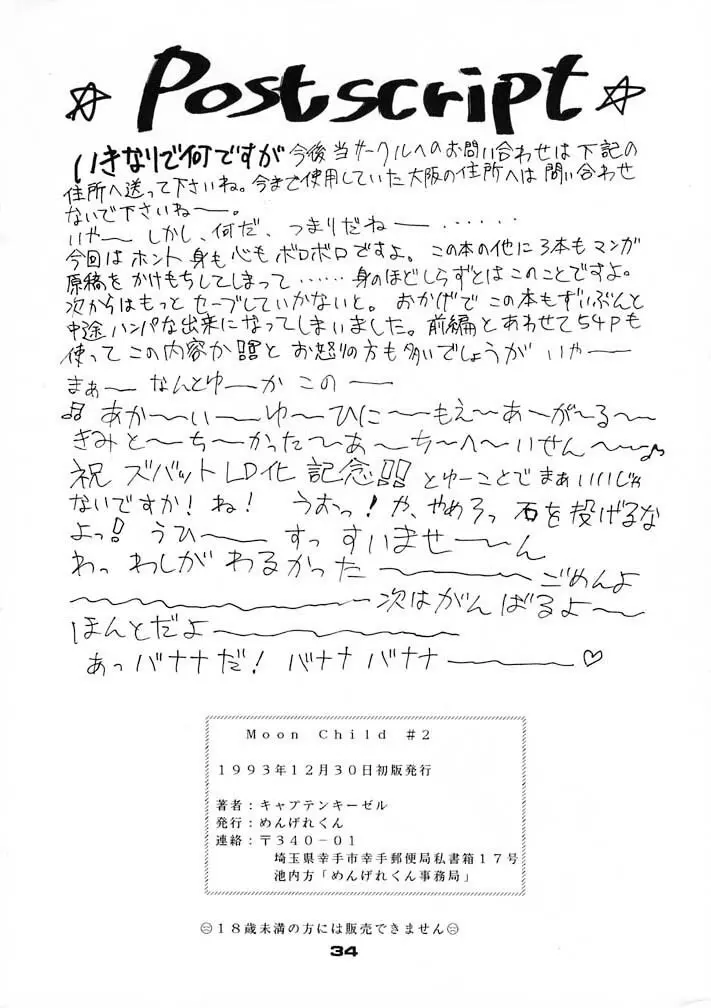 Postscript
いきなりで何ですが 今後当サークルへのお問い合わせは 下記の
住所へ送って下さいね。今まで使用していた大阪の住所へは 問い合わせ
ないで下さいね〜ー。
いやー しかし、何だ、つまりだねー ‥‥‥
今回は ホント 身も心もボロボロですよ。この本の他に3本もマンガ
原稿を かけもちしてしまって ‥‥‥ 身のほどしらずとはこのことですよ。
次からはもっと セーブしていかないと。 おかげで この本もずいぶんと
中途ハンパな出来になってしまいました。前編とあわせて54Pも
使って この内容か!!!と お怒りの方も多いでしょうが いやー
まぁー なんとゆーか この ー
♫ あか〜〜い〜ー ゆ〜〜ひに〜〜もえ〜〜あ〜が〜る〜〜
きみと〜ち〜かった〜あ〜ち〜へ〜いせん〜〜〜♪
祝 ズバットLD化 記念!! とゆーことで まぁいいじゃ
ないですか! ね! うおっ! や、やめろっ 石を投げるな
よっ! うひー すっ すいませーーん
わっ わしが わるかった 〜〜〜 ごめんよ
〜〜〜〜〜 次はがんばるよ〜〜
ほんとだよ 〜〜〜〜
あっバナナだ! バナナ バナナ 〜〜〜♡
Moon Child #2
1993年12月30日初版発行
著者:キャプテンキーゼル
発行:めんげれくん
連絡:〒340-01
埼玉県幸手市幸手郵便局私書箱17号
池内方「めんげれくん事務局」
18歳未満の方には販売できません
34